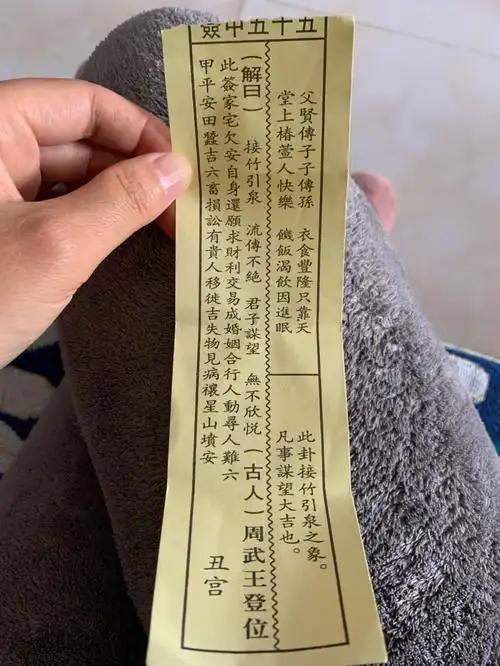 五十五中簽
父賢傳子子傳孫 衣食豐隆只靠天
堂上椿萱人快樂 饑飯渴飲困進眠
此卦接竹引泉之象。
凡事謀望大吉也。
(解曰) 接竹引泉 流傳不絕 君子謀望 無不欣悅 (古人) 周武王登位
此簽家宅欠安自身還願求財利交易成婚姻合行人動尋人難六
甲平安田蠶吉六畜損訟有貴人移徙吉失物見病禳星山墳安
丑宮